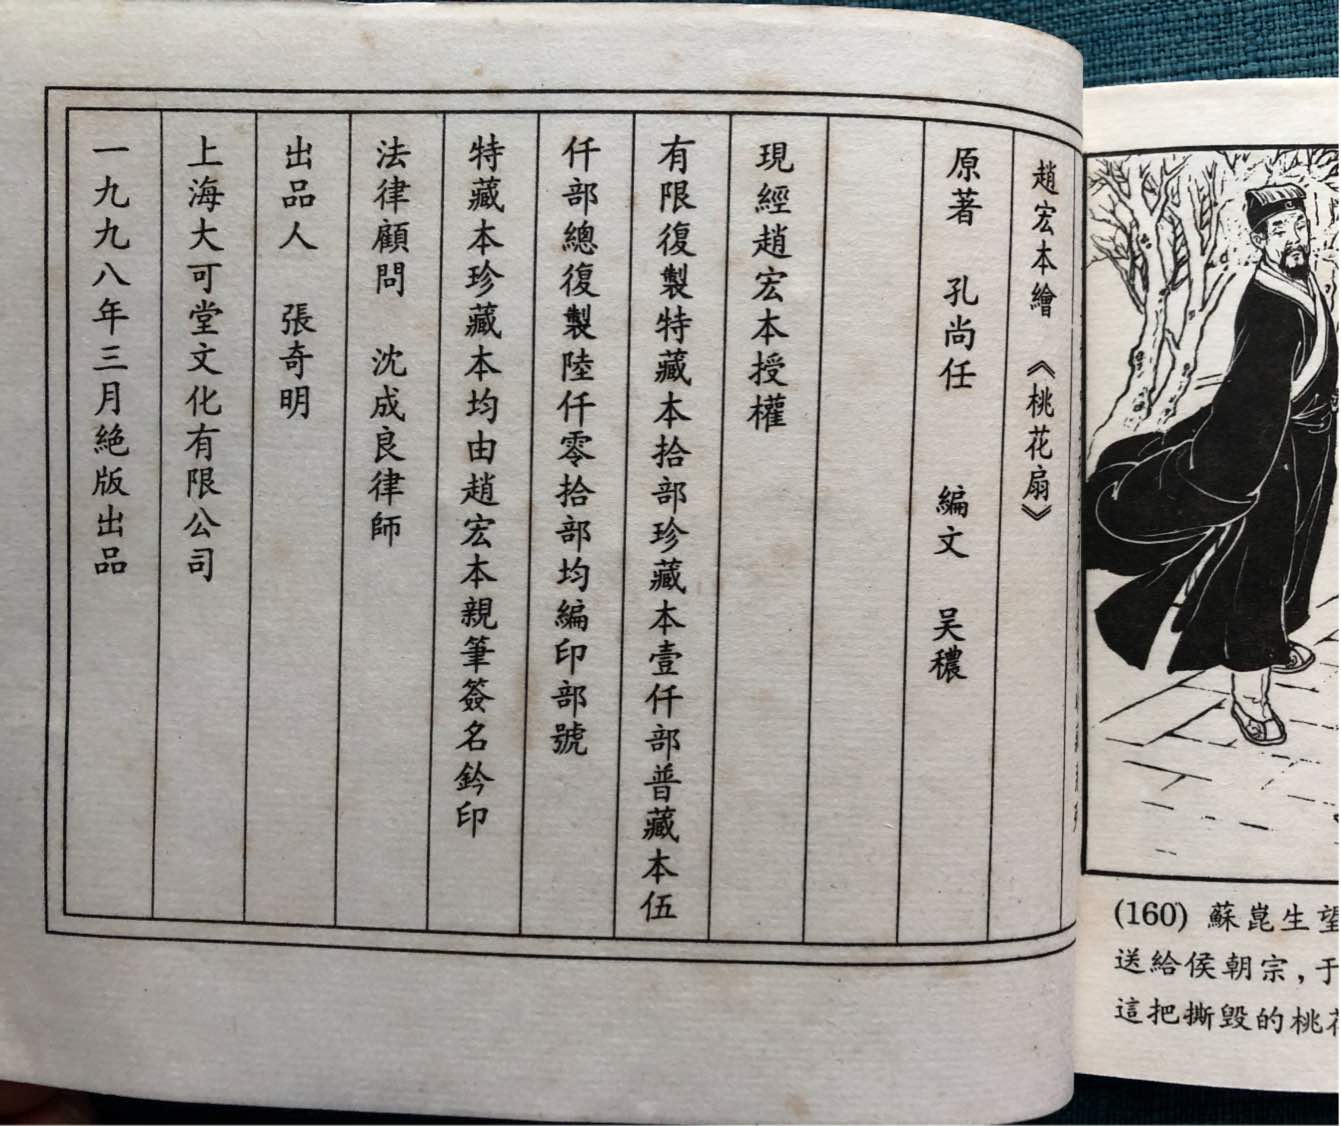 趙宏本繪　《桃花扇》
原著　孔尚任　　編文　吴穠
現經趙宏本授權
有限復製特藏本拾部珍藏本壹仟部普藏本伍
仟部總復製陸仟零拾部均編印部號
特藏本珍藏本均由趙宏本親筆簽名鈐印
法律顧問　沈成良律師
出品人　張奇明
上海大可堂文化有限公司
一九九八年三月絕版出品
(160) 蘇崑生望
送給侯朝宗,于
這把撕毀的桃花